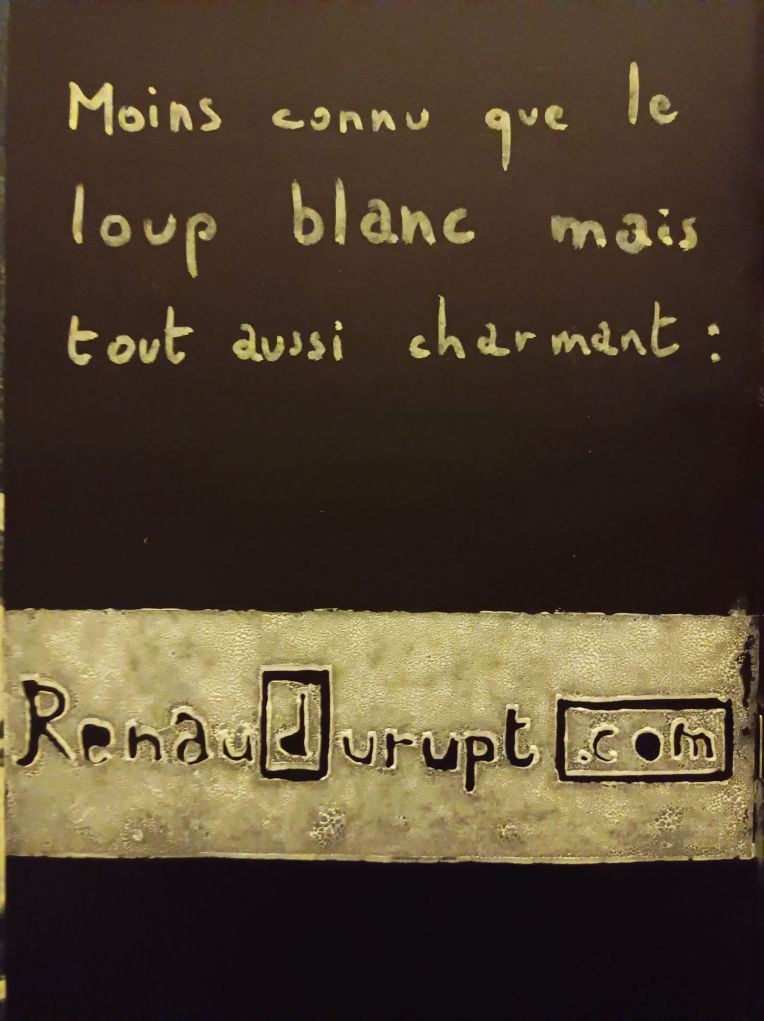 Moins connu que le
loup blanc mais
tout aussi charmant :
Renaudurupt .com